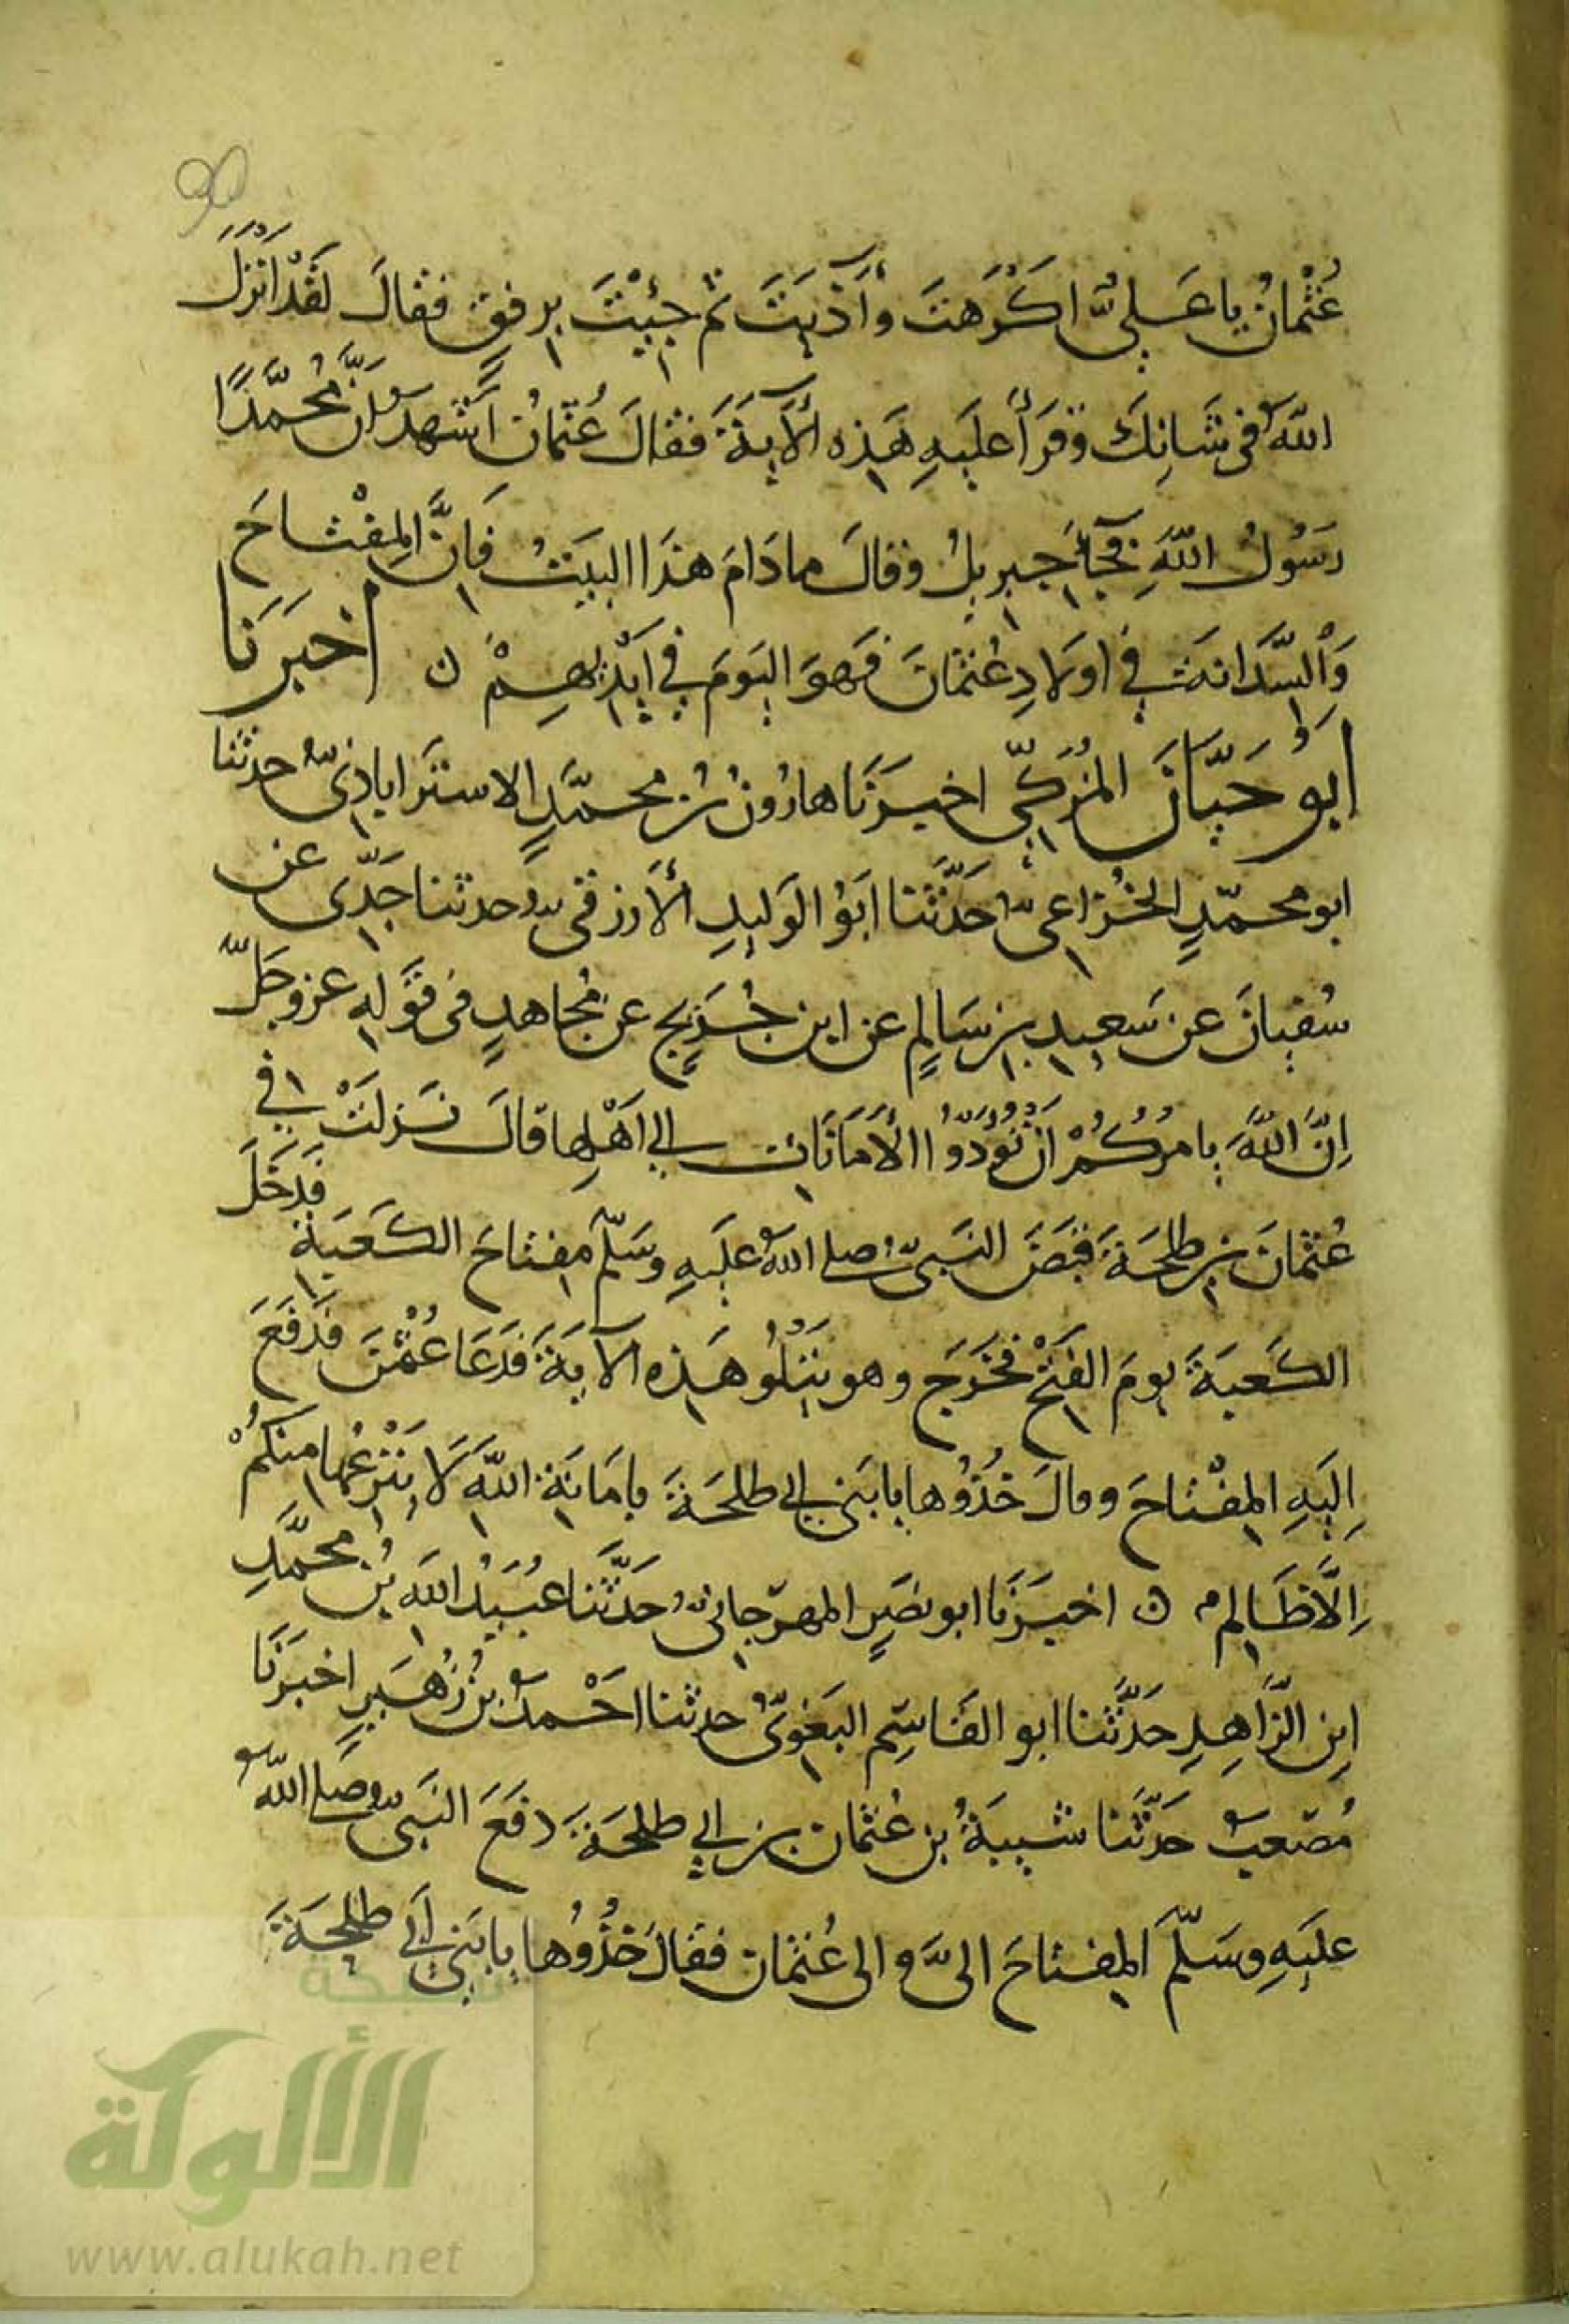 عُثْمانُ يا عَلِيُّ اكْرَهتَ وأَذَيتَ ثم جِئْتَ برفقٍ فقالَ لقَدْ اَنْزَلَ
اللهُ فى شَانِكَ وقرَأَ علَيهِ هَذِه ألآيَةَ فقالَ عُثمانُ اَشْهَدُ انَّ مُحَمَّدًا
رَسُولُ اللّهِ فجآءَ جبريلُ وقالَ ما دَامَ هذَا البيَتُ فَانَّ المِفْتاحَ
وَالسَّدَانَةَ فِى اولَادِ عُثمَانَ فهوَ اليَومَ فِى اَيْدِيهِمْ ن اخبَرَنا
ابُو حَسَّانَ المُزَكِّى اخبرَنَا هارُونُ بْنُ محمَّدٍ الاستَراباذِىُّ حدثنا
ابو محمّدٍ الخُزاعىُّ حَدَّثَنا اَبُو الوَليدِ ألأزرَقىُّ حدثنا جَدِّى عن
سُفيانَ عن سَعيدِ بنِ سَالِمٍ عن ابنِ جُرَيجٍ عن مُجاهدٍ فى قَولِهِ عزوجَلَّ
اِنَّ اللّهَ يامُرُكُمْ اَنْ تُؤَدُّوا الأَمَانَاتِ الى اَهْلِها قالَ نَزلَتْ فى
عُثمانَ بنِ طلحَةَ قبَضَ النَّبىُّ صلى اللهُ علَيهِ وسَلّم مِفتاحَ الكَعبَةِ فدَخَلَ
الكَعبَةَ يومَ الفَتْحِ فخَرَج وهو يَتْلُو هَذِه الآيَةَ فَدَعَا عُثْمنَ فدَفَعَ
اِلَيهِ المِفْتاحَ وقالَ خُذُوها يا بَنِى ابى طلحَةَ بامَانَةِ اللّهِ لَا يَنْزِعُها مِنكُمْ
اِلَّا ظَالِم ن اخبرَنَا ابو نصَرٍ المهرَجانىُّ حَدَّثَنا عبُيَدُ اللّهِ بنُ محمَّدِ
ابنِ الزَّاهِدِ حَدَّثَنا ابو القَاسِمِ البَغَوىُّ حدثنا احْمدُ بنُ زُهَيرٍ اخبَرَنَا
مُصْعبُ حَدَّثَنا شَيبَةُ بن عُثمانَ بنِ ابى طلحَةَ دفَعَ النَّبىُّ صَلى اللهُ
علَيهِ وسَلّمَ المِفتاحَ الىَّ والى عُثمانَ فقالَ خُذُوُها يا بَنِى اَبى طلحَةَ
شبكة
الألوكة
www.alukah.net